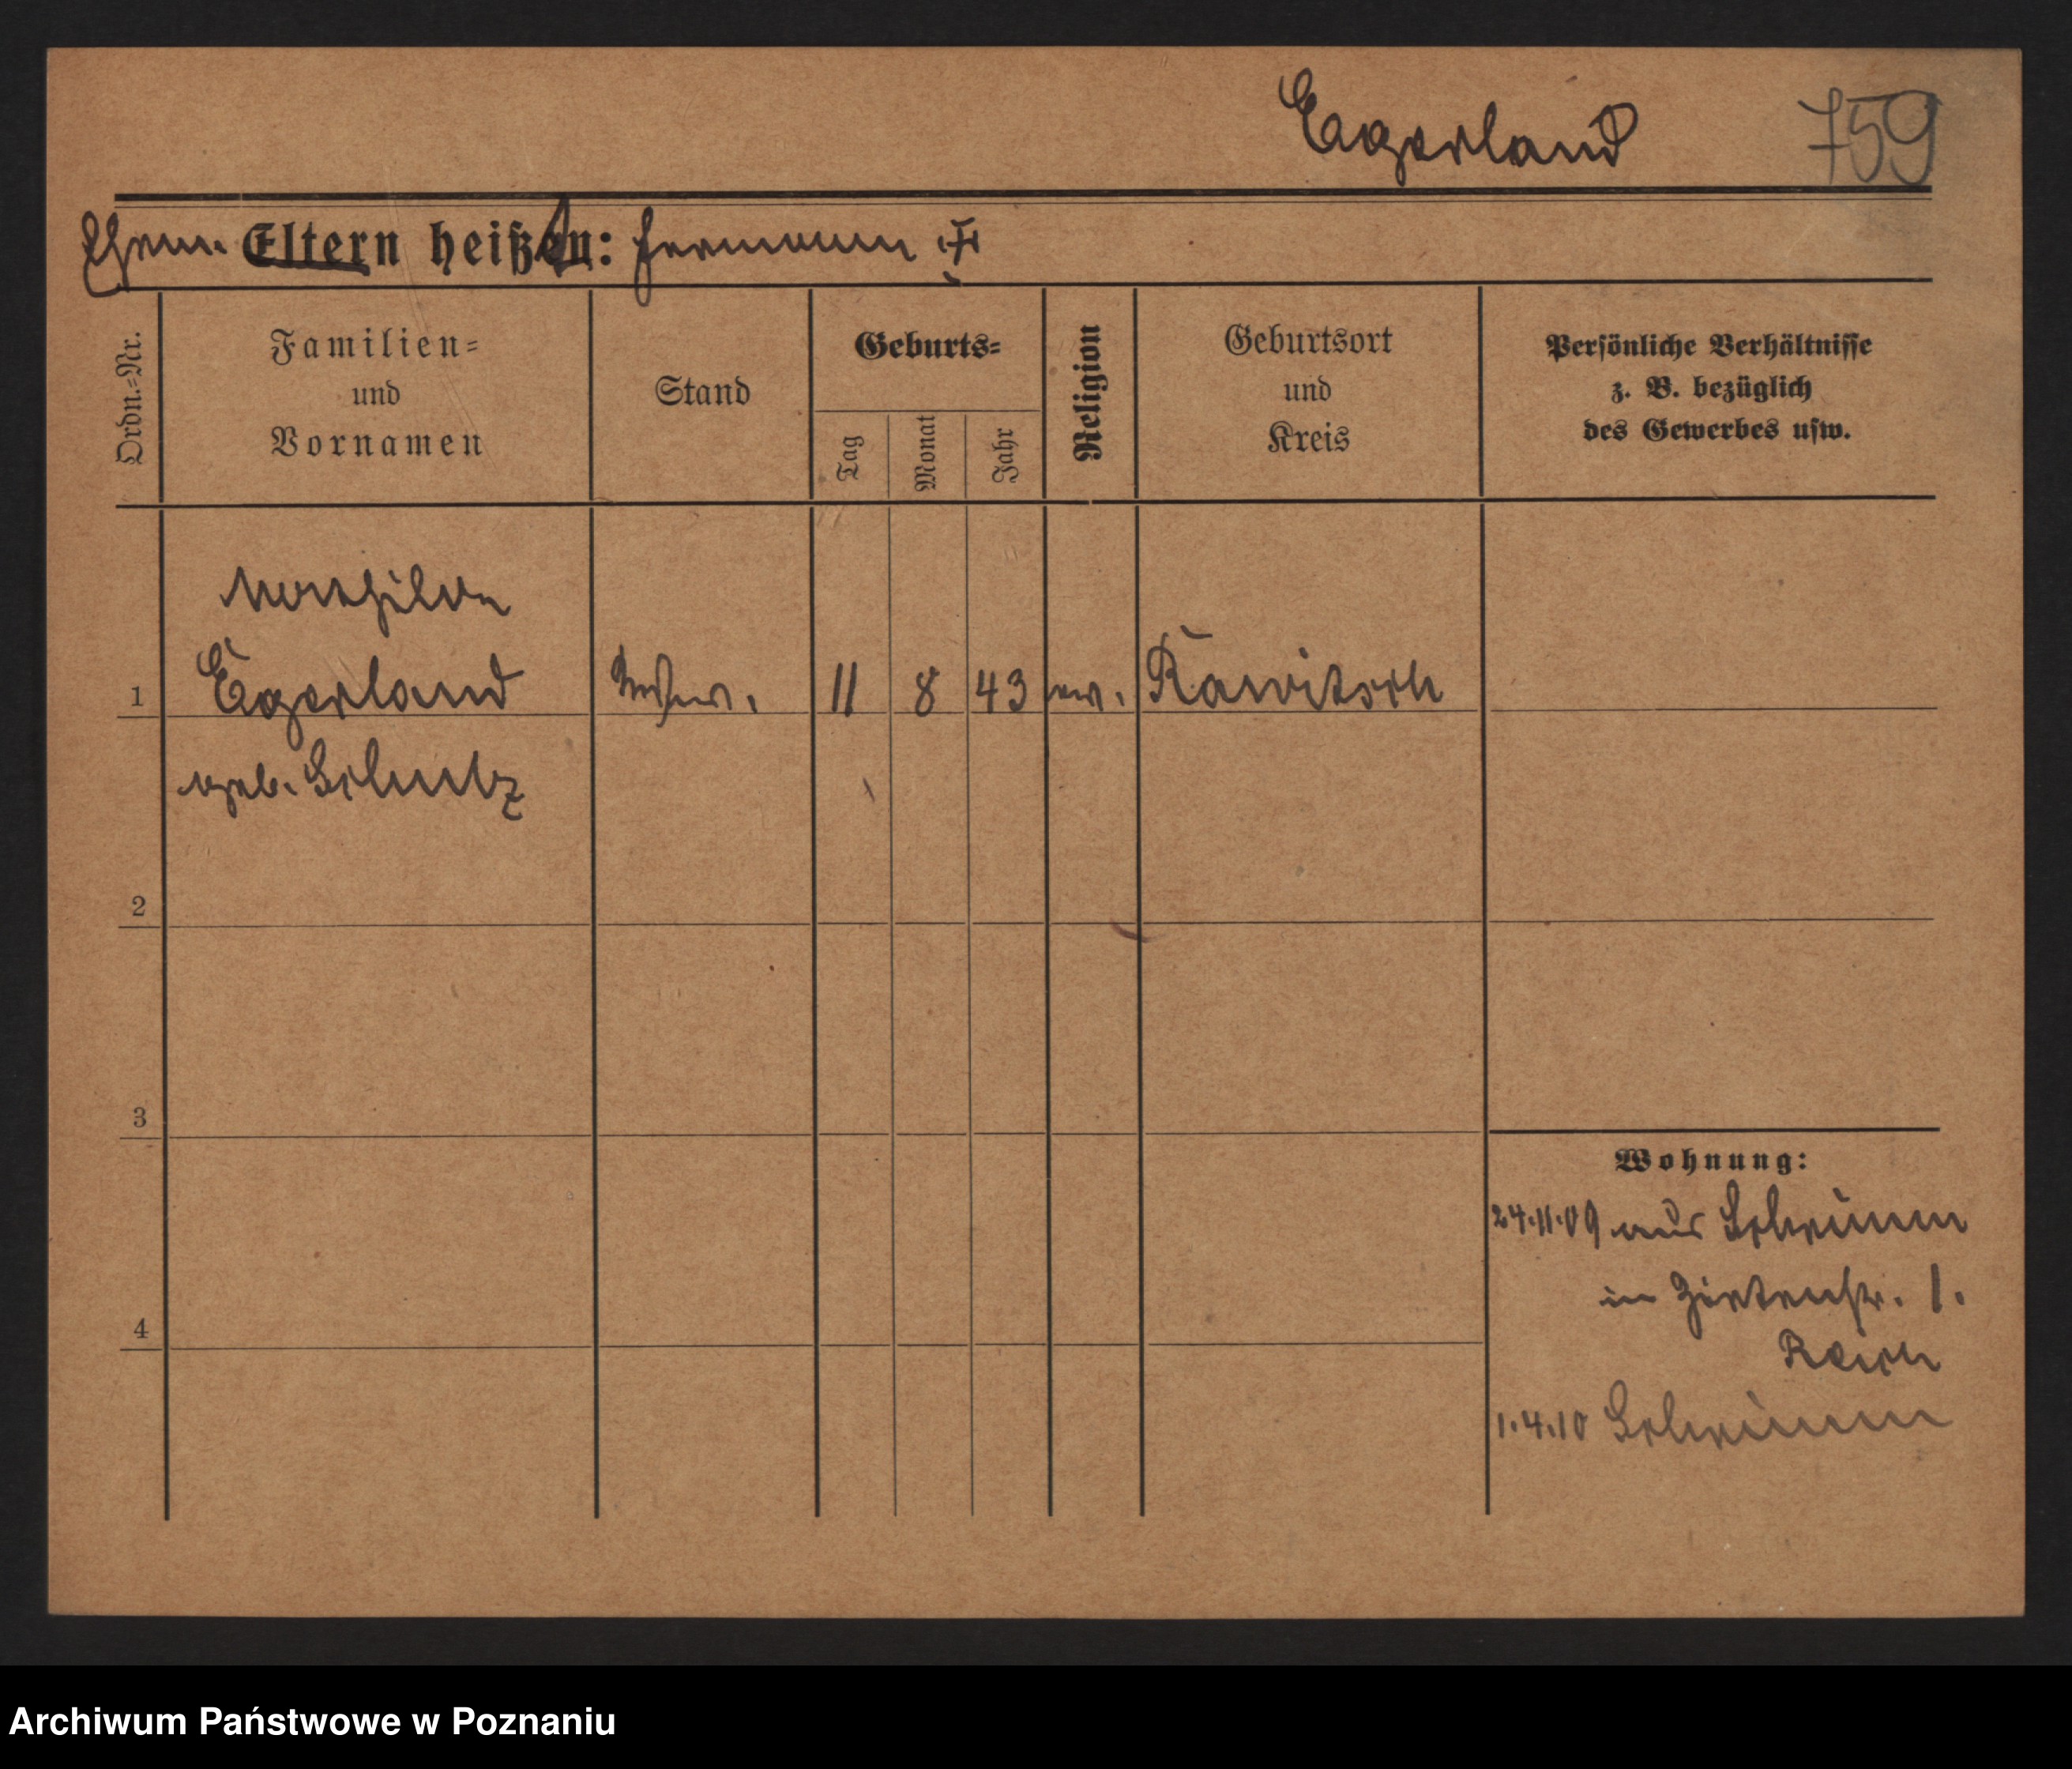 Egerland 759
Ehem. Eltern heißt: Hermann †
Ordn.=Nr.
Familien=
und
Vornamen
Stand
Geburts=
Tag
Monat
Jahr
Religion
Geburtsort
und
Kreis
Persönliche Verhältnisse
z. B. bezüglich
des Gewerbes usw.
Mathilde
1 Egerland 11 8 43 ev. Rawitsch
geb. Schulz
2
3
4
Wohnung:
24.11.09 aus Schrimm
in Gartenstr. 1.
Reich
1.4.10 Schrimm
Archiwum Państwowe w Poznaniu